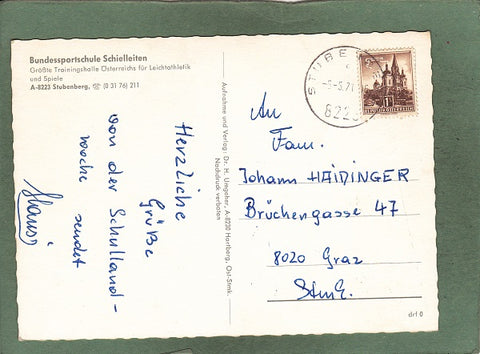 Bundessportschule Schielleiten
Größte Trainingshalle Österreichs für Leichtathletik
und Spiele
A-8223 Stubenberg, ☎ (0 31 76) 211
Herzliche
Grüße
von der Schulland-
woche sendet
Aufnahme und Verlag: Dr. H. Umgeher, A-8230 Hartberg, Ost-Stmk.
Nachdruck verboten
An
Fam.
Johann HAIDINGER
Brückengasse 47
8020 Graz
Stmk.
drf 0